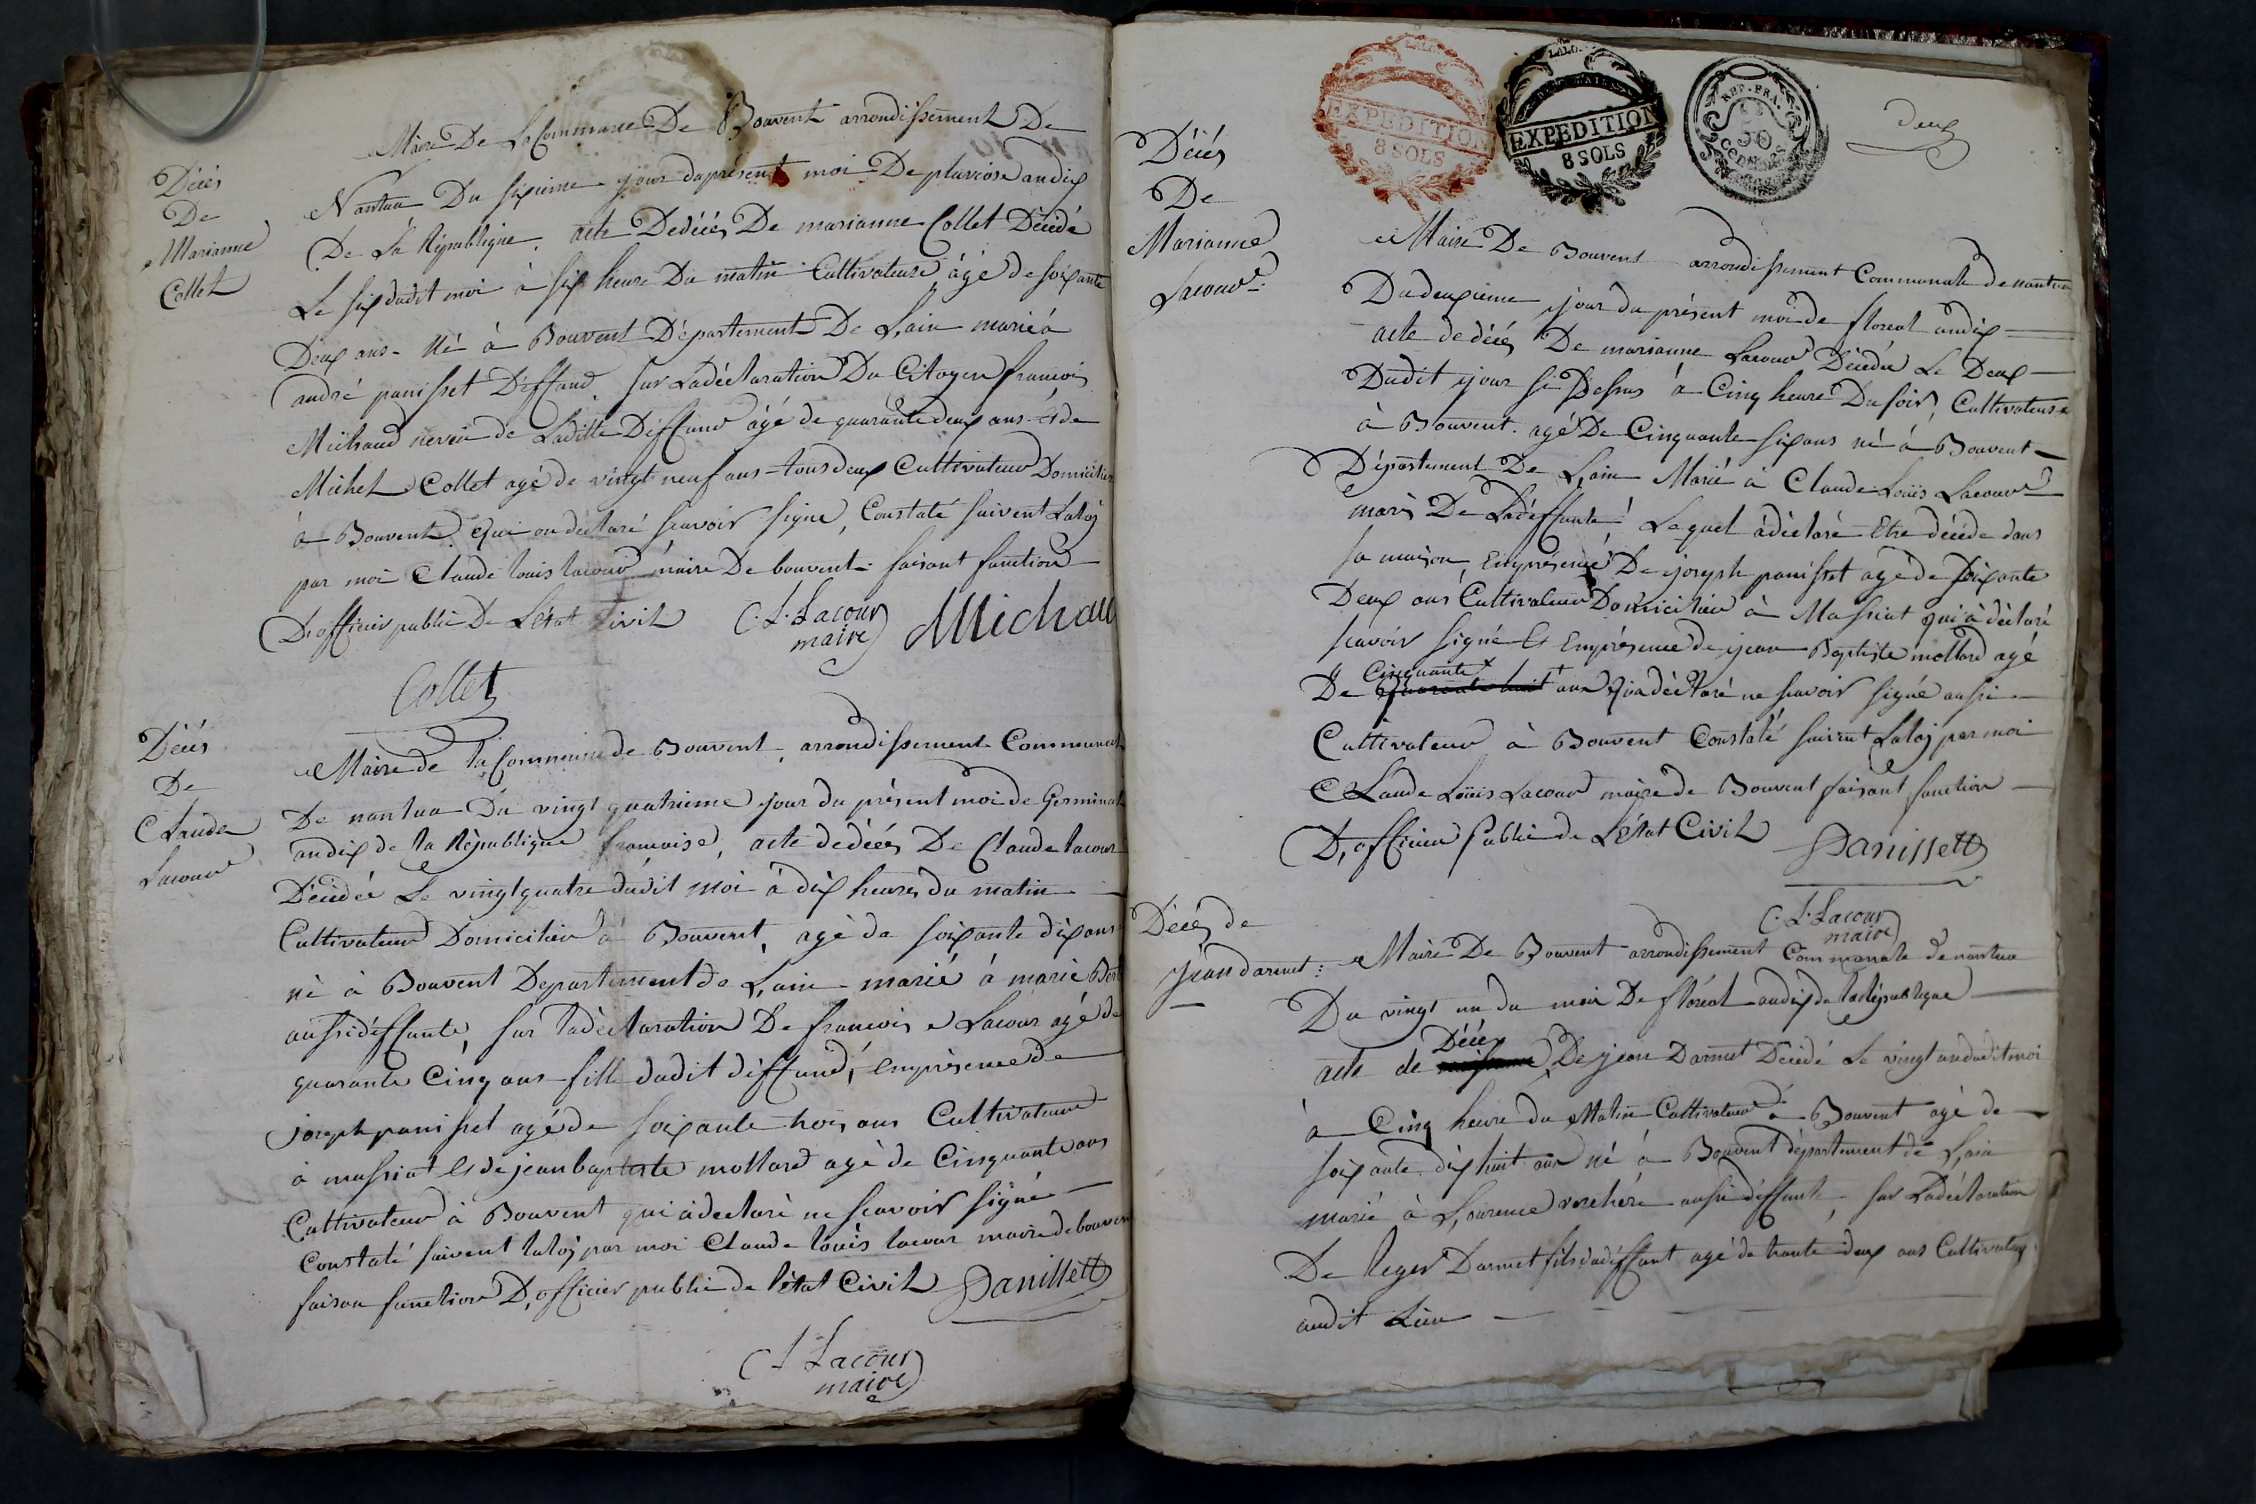 Décés
De
Marianne
Collet
Maire De La Commune De Bouvent arrondissement De
Nantua Du sixieme jour du présent moi De pluviose an dix
De La République. acte De décés De marianne Collet Décédé
Le six dudit moi à six heure Du matin Cultivateuse âgé de soixante
Deux ans. Né à Bouvent Département De L,ain marié à
andré panisset Deffand sur La déclaration Du Citoyen francois
Michaud neveu de Ladille Deffund âgé de quarante deux ans et de
Michel Collet agé de vingt neuf ans tous deux Cultivateur Domicilier
à Bouvent. Qui on déclaré scavoir signe, Constaté suivent La loj
par moi Claude louis lacour maire De bouvent faisant fonction
D,officier public De L'état Civil C. L. Lacour
maire Michau
Collet
Décés
De
Claude
Lacour
Maire de la Commune de Bouvent, arrondissement Communal
De nantua Du vingt quatrieme jour du présent moi de Germinal
an dix de la République francoise, acte de décés De Claude lacour
Décédée Le vingt quatre dudit moi à dix heures du matin
Cultivateur Domicilier à Bouvent, agé de soixante dix ans
né à Bouvent Departement de L,ain marié à marie
aussi déffunte, sur la déclaration De francois Lacour agé de
quarante Cinq ans fille dudit déffund, en présence de
joseph panisset agé de soixante trois ans Cultivateur
à massiat Et de jean baptiste mottard agé de Cinquante ans
Cultivateur à Bouvent qui à declaré ne scavoir signé
Constaté suivent la loj par moi Claude loüis lacour maire de bouven
faison fonction D,officier public de l'état Civil Panissett
C L Lacour
maire
deux
EXPEDITION
8 SOLS
EXPEDITION
8 SOLS
REP. FRA.
50
CENTIMES
Décés
De
Marianne
Lacour.
Maire De Bouvent arrondissement Communale de nantua
Du deuxieme jour du présent moi de floreal an dix
acte de décés De marianne Lacour Décédée Le Deux
Dudit jour si Dessus à Cinq heure Du soir, Cultivateuse
à Bouvent. agé De Cinquante six ans né à Bouvent
Département De L,ain Marié à Claude Loüis Lacour
maris De La déffunte, Lequel à déclaré Etre décédé dans
sa maison, En présence De joseph panisset agé de soixante
Deux ans Cultivateur Domicilier à Massiat qui à déclaré
scavoir signé Et En présence de jean Baptiste mottard agé
Cinquante
De quarante huit ans Qui a déclaré ne scavoir signé aussi
Cultivateur à Bouvent Constaté suivent La loj par moi
Claude Loüis Lacour maire de Bouvent faisant fonction
D,officier Public de L'état Civil Panissett
C. L. Lacour
maire
Décés de
Jean darmet:
Maire De Bouvent arrondissement Communale de nantua
Du vingt un du moi De floréal an dix de la République
Décés
acte de De jean Darmet Décédé Le vingt un dudit moi
à Cinq heure du Matin Cultivateur à Bouvent agé de
soixante dix huit ans né à Bouvent département de L,ain
marié à L,aurence aussi déffunte, sur La déclaration
De leger Darmet fils du déffunt agé de trante deux ans Cultivateur
audit Lieu